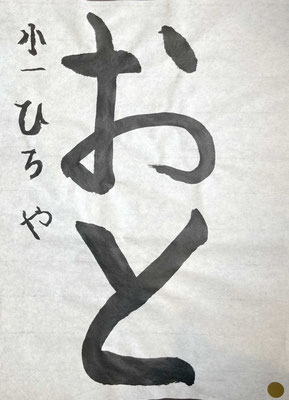 おと
小一ひろや